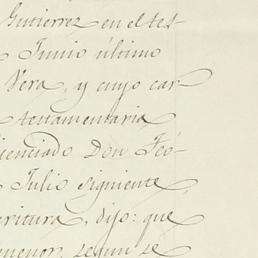 Gutierrez en el tes
Junio último
Vera, y cuyo car
testamentaria
icenciado Don Teó-
Julio siguiente,
critura, dijo: que
menor, segun se